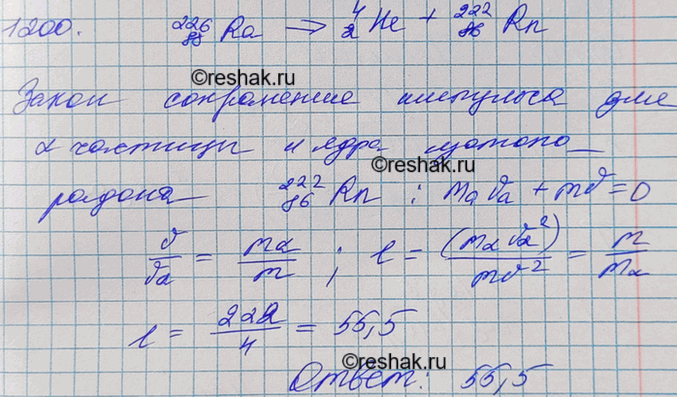 1200. ²²⁶₈₈Ra → ⁴₂He + ²²²₈₆Rn
©reshak.ru
Закон сохранение импульса для
α частицы и ядра изотопа
©reshak.ru
радона ²²²₈₆Rn : mαϑα + mϑ = 0
ϑ/ϑα = mα/m ; l = (mαϑα²)/mϑ² = m/mα
l = 222/4 = 55,5
©reshak.ru
Ответ: 55,5